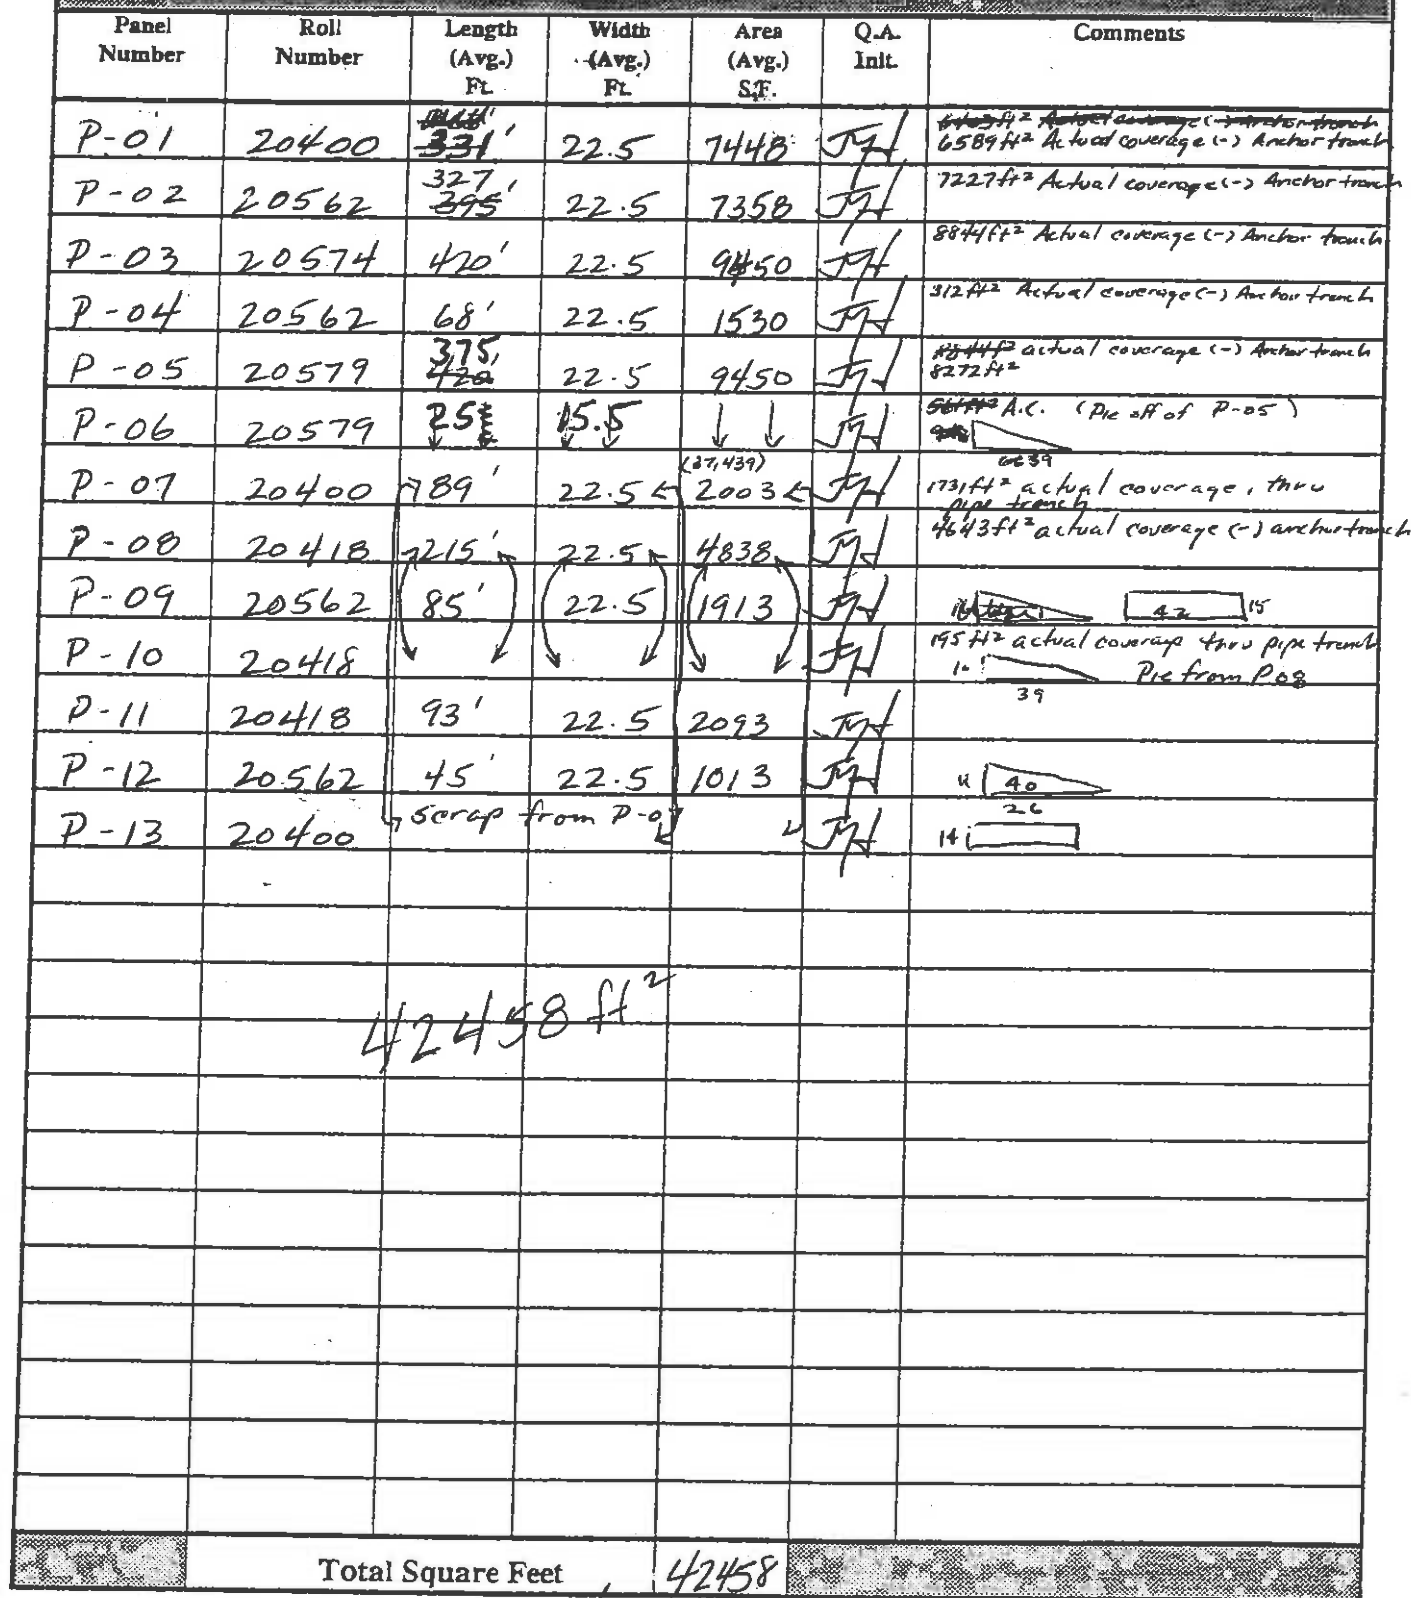 Panel Number Roll Number Length (Avg.) Ft. Width (Avg.) Ft. Area (Avg.) S.F. Q.A. Init. Comments
P-01 20400 331' 22.5 7448 JH 6589 ft² Actual coverage (-) Anchor trench
P-02 20562 327' 395 22.5 7358 JH 7227 ft² Actual coverage (-) Anchor trench
P-03 20574 420' 22.5 9450 JH 8844 ft² Actual coverage (-) Anchor trench
P-04 20562 68' 22.5 1530 JH 312 ft² Actual coverage (-) Anchor trench
P-05 20579 375' 420 22.5 9450 JH actual coverage (-) Anchor trench
8272 ft²
P-06 20579 25 15.5 JH A.C. (Pie off of P-05)
39
(37,439)
P-07 20400 89' 22.5 2003 JH 1731 ft² actual coverage, thru
pipe trench
P-08 20418 215' 22.5 4838 JH 4643 ft² actual coverage (-) anchor trench
P-09 20562 85' 22.5 1913 JH 42 15
P-10 20418 JH 195 ft² actual coverage thru pipe trench
39 Pie from P08
P-11 20418 93' 22.5 2093 JH
P-12 20562 45' 22.5 1013 JH 40
26
P-13 20400 scrap from P-07 JH 14
42458 ft²
Total Square Feet 42458